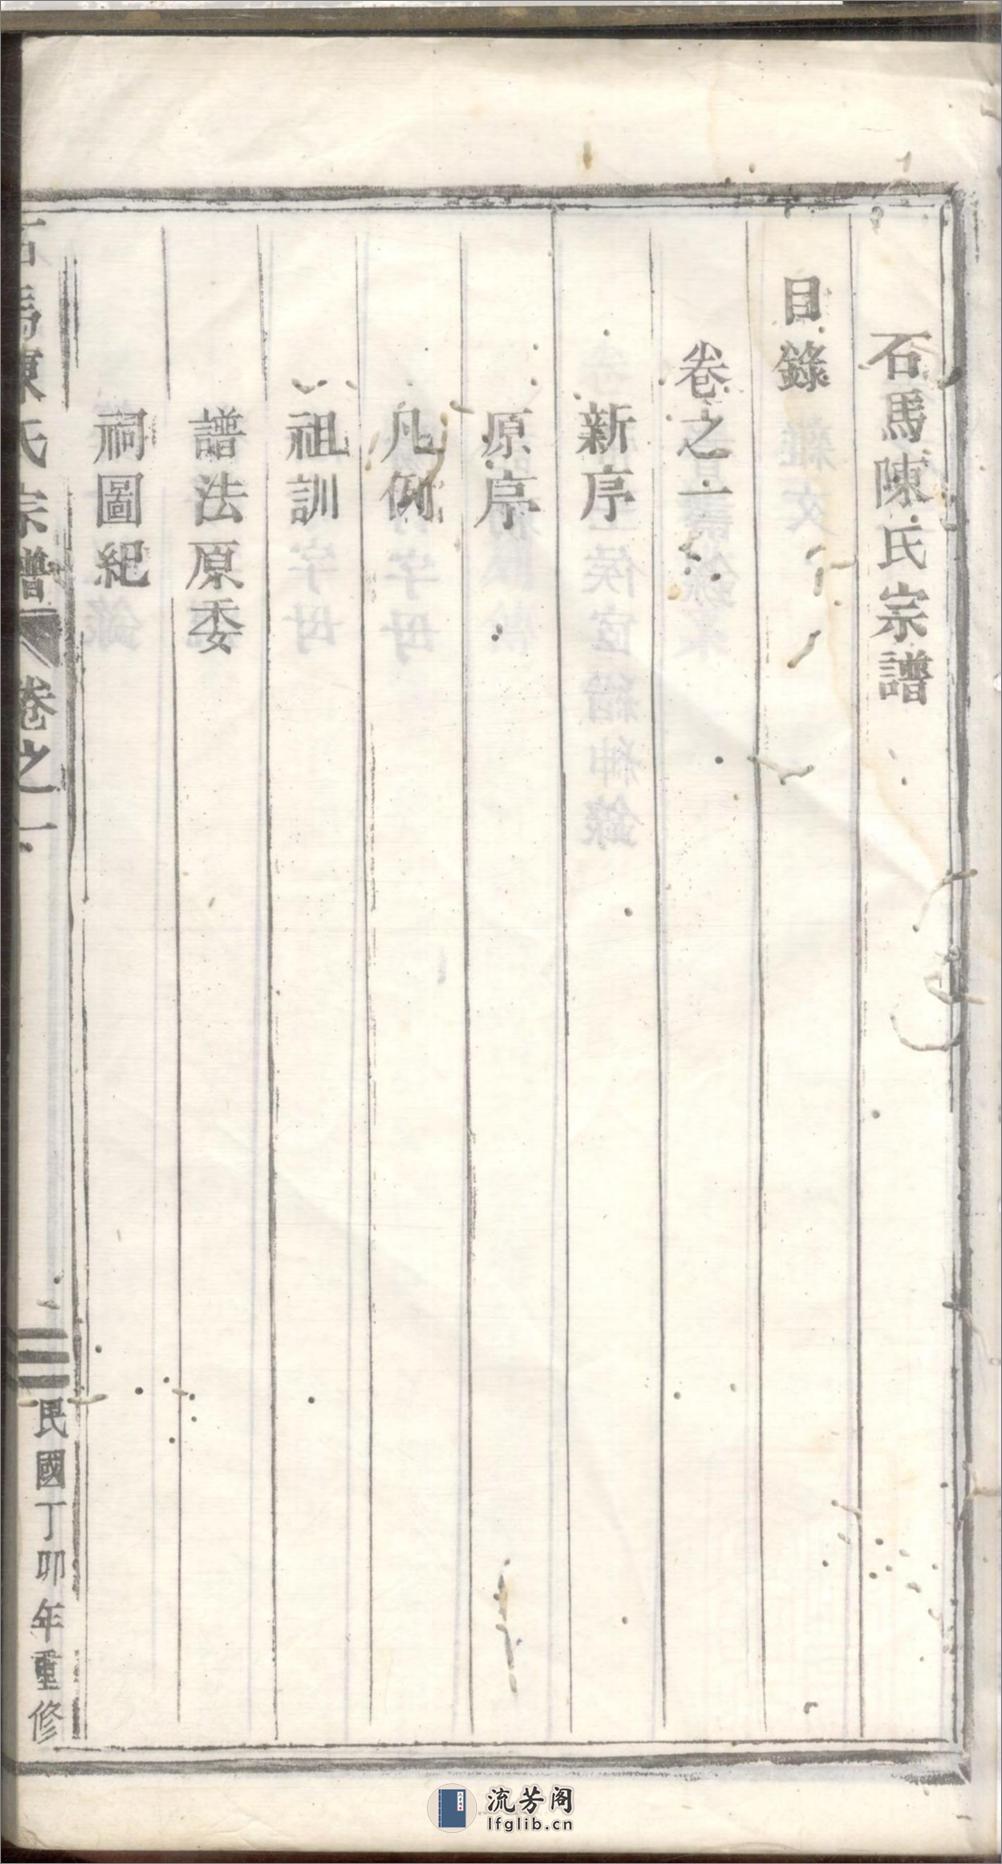 石馬陳氏宗譜
目錄
卷之一
新序
原序
凡例
祖訓
譜法原委
祠圖紀
石馬陳氏宗譜 卷之一
民國丁卯年重修
流芳阁
lfglib.cn